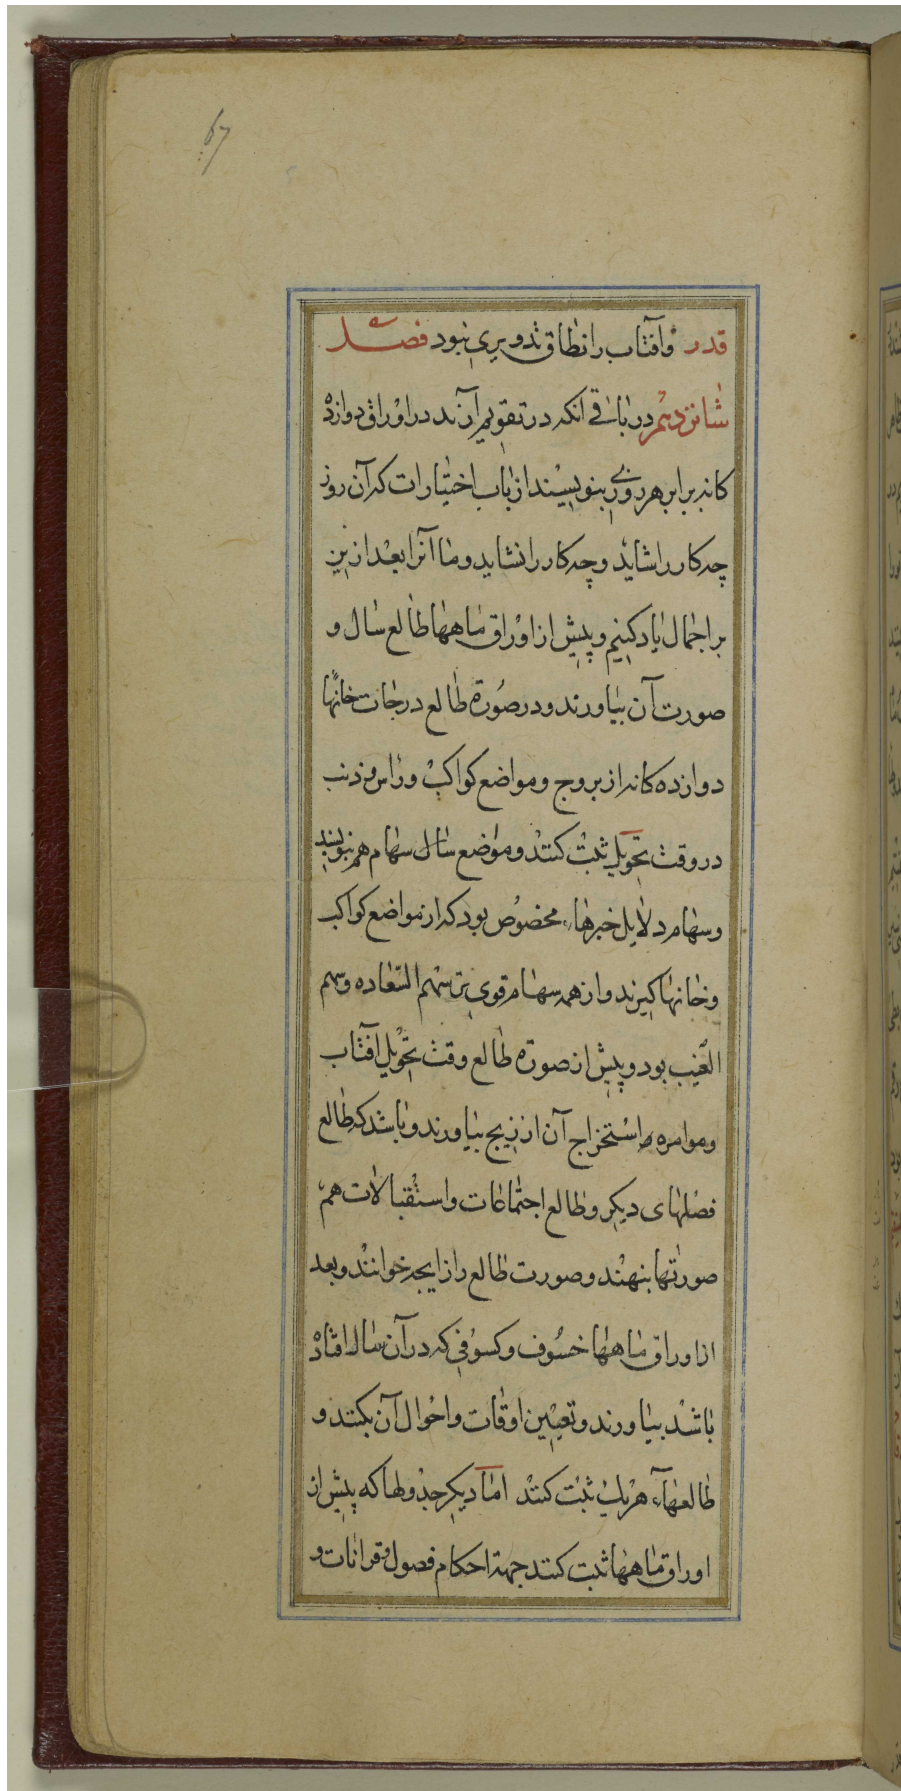 67
قدر وآفتاب را نطاق تدویری نبود فصل
شانزدهم در باقی آنکه در تقویم آرند در اوراق دوازده
کانه برابر هر روزی بنویسند از باب اختیارات که آن روز
چه کار را شاید و چه کار را نشاید و ما آنرا بعد ازین
بر اجمال یاد کنیم و پیش از اوراق ماهها طالع سال و
صورت آن بیاورند و در صورة طالع درجات خانها
دوازده کانه از بروج و مواضع کواکب و راس و ذنب
در وقت تحویل ثبت کنند و مواضع سال سهام هم بنویسند
و سهام دلایل خبرهاء مخصوص بود که از مواضع کواکب
و خانها کیرند و از همه سهام قوی تر سهم السّعاده و سهم
الغیب بود و پیش از صورة طالع وقت تحویل آفتاب
و موامره و استخراج آن از زیج بیاورند و باشد که طالع
فصلهای دیکر و طالع اجتماعات و استقبالات هم
صورتها بنهند و صورت طالع را زایجه خوانند و بعد
از اوراق ماهها خسوف و کسوفی که در آن سال افتاده
باشد بیاورند و تعیین اوقات و احوال آن بکنند و
طالعهاء هر یک ثبت کنند اما دیکر جدولها که پیش از
اوراق ماهها ثبت کنند جهة احکام فصول و قرانات و